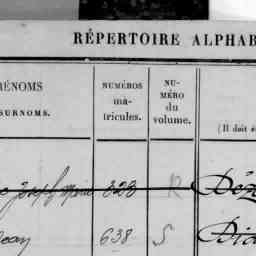 RÉPERTOIRE ALPHAB
RÉNOMS
SURNOMS.
NUMÉROS
ma-
tricules.
NU-
MÉRO
du
volume.
(Il doit é
Joseph Marie 323 R
Jean 638 S Did